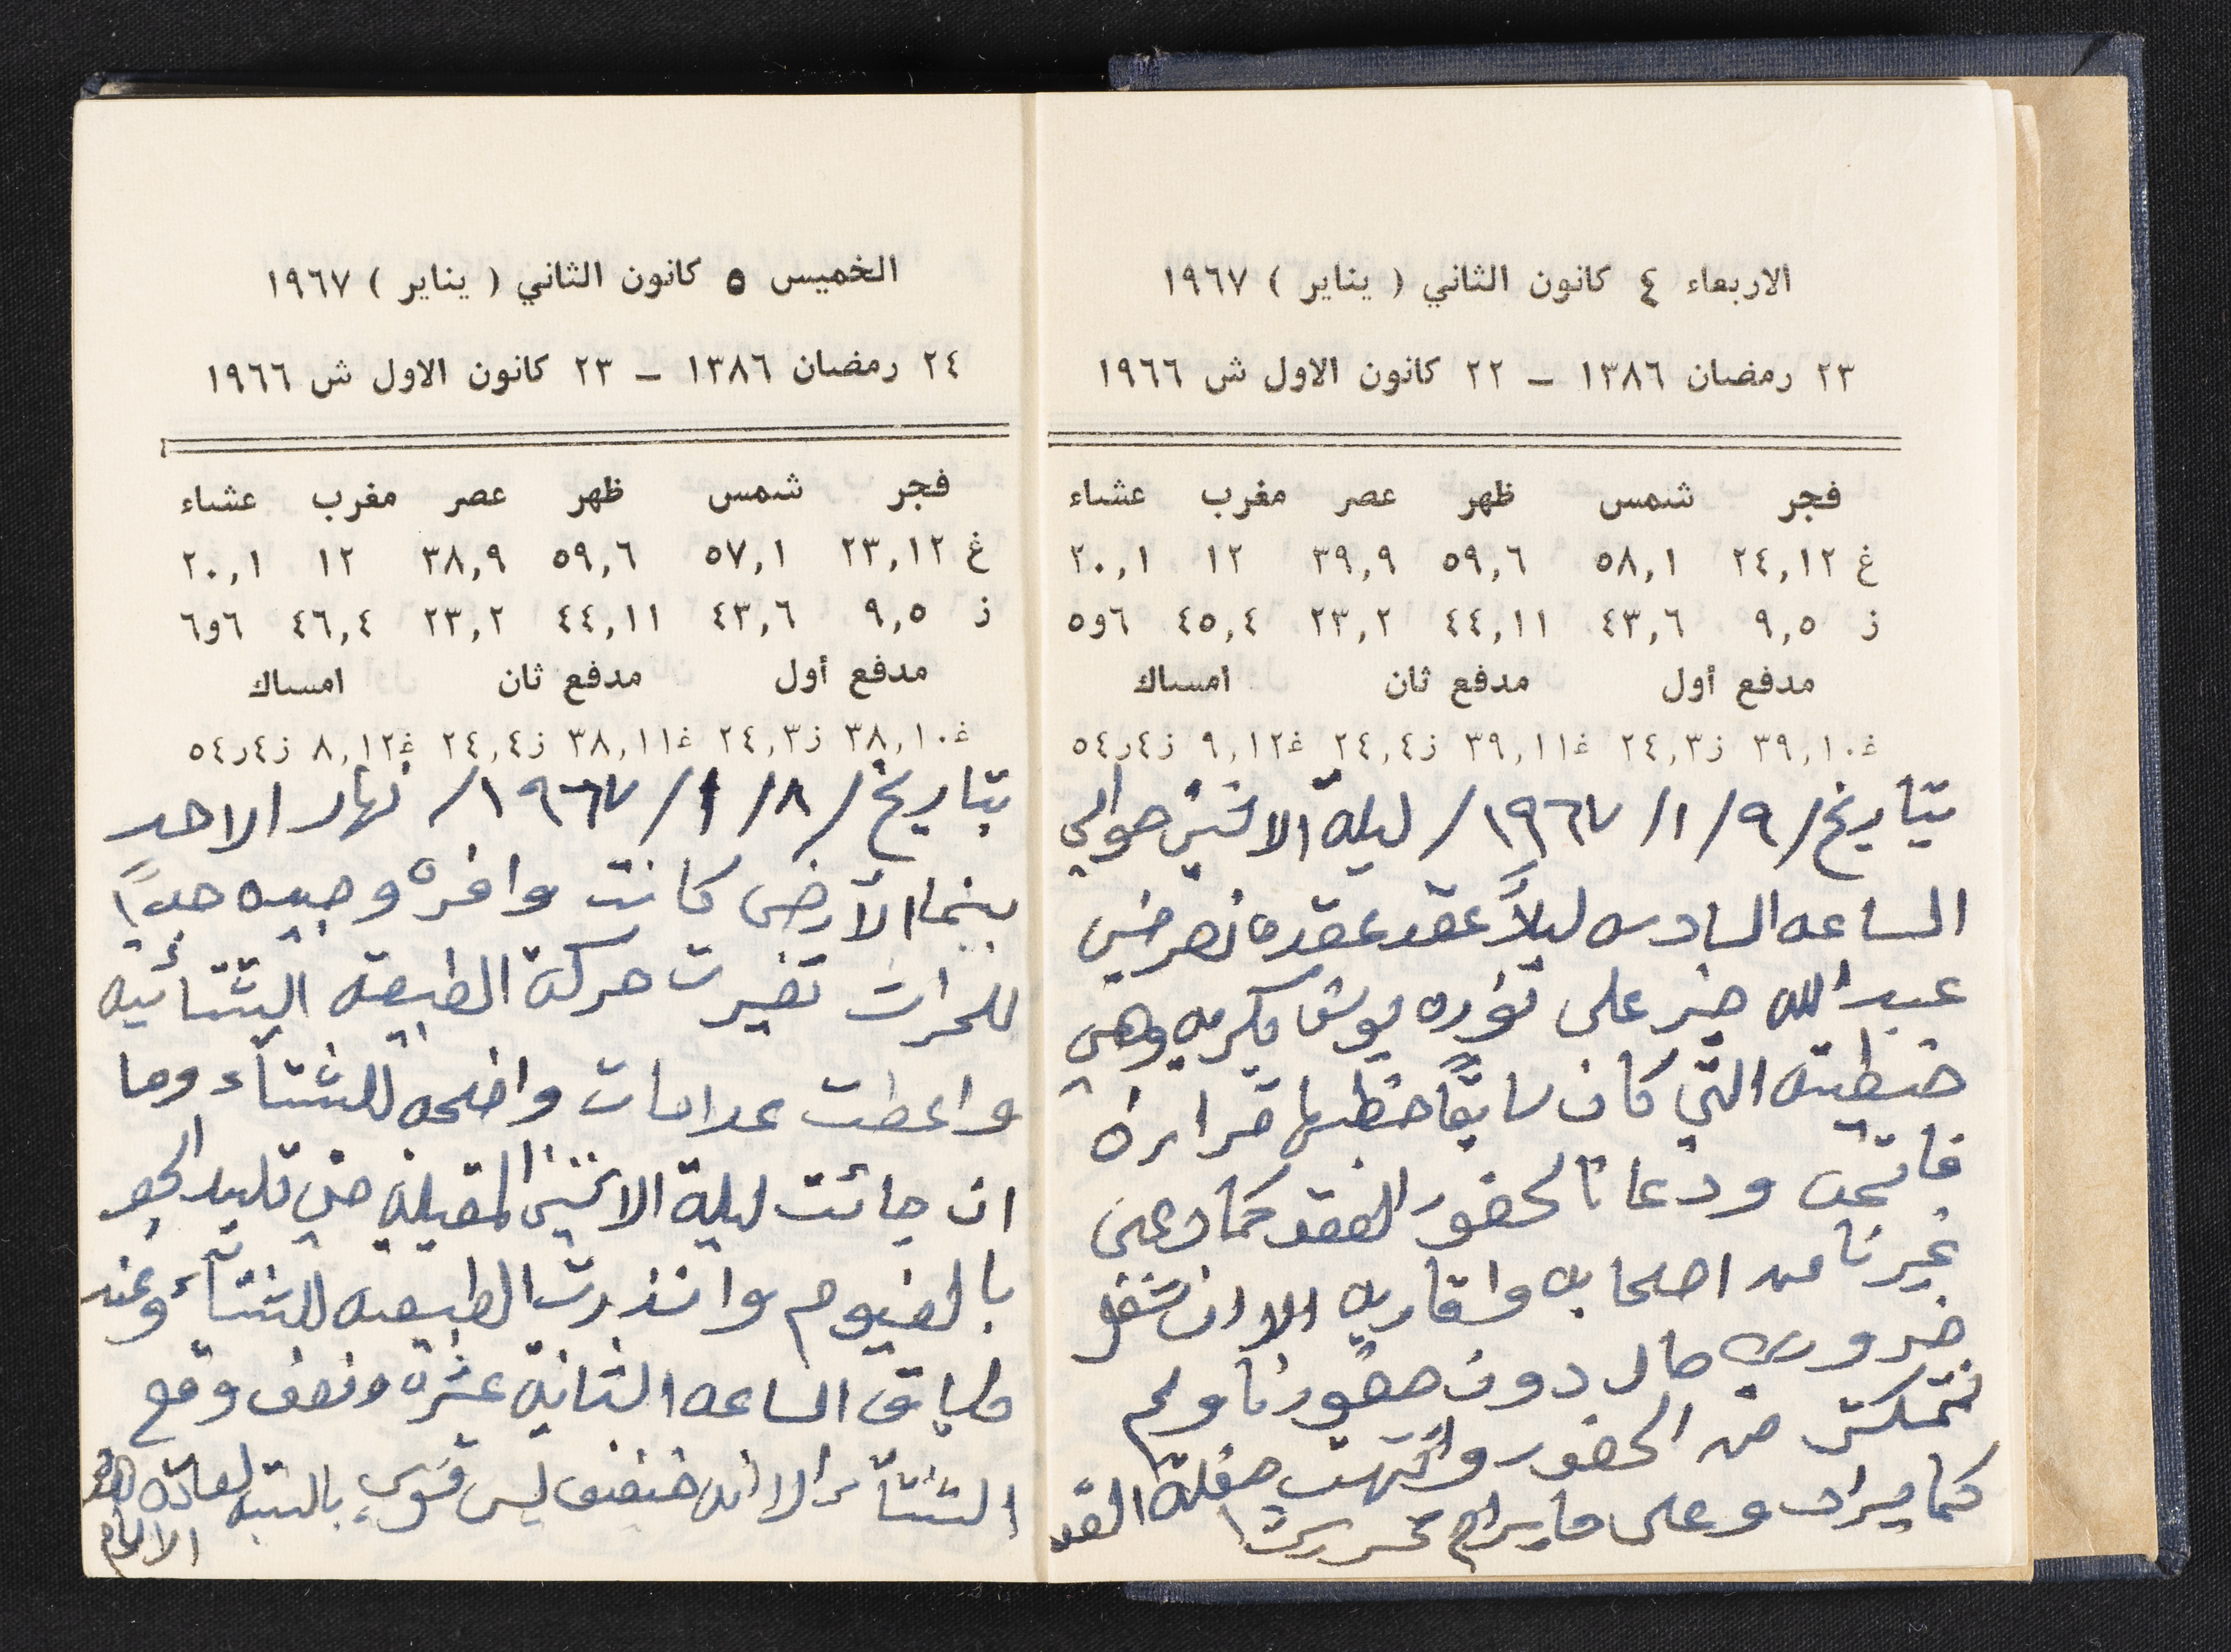 الاربعاء ٤ كانون الثاني ( يناير ) ١٩٦٧
٢٣ رمضان ١٣٨٦ – ٢٢ كانون الاول ش ١٩٦٦
فجر شمس ظهر عصر مغرب عشاء
غ ٢٤,١٢ ٥٨,١ ٥٩,٦ ٣٩,٩ ١٢ ٢٠,١
ز ٩,٥ ٤٣,٦ ٤٤,١١ ٢٣,٢ ٤٥,٤ ٦و٥
مدفع أول مدفع ثان امساك
غ٣٩,١٠ ز٢٤,٣ غ٣٩,١١ ز٢٤,٤ غ٩,١٢ ز٤ر٥٤
بتاريخ/٩/١/١٩٦٧/ ليلة الاثنين حوالي
الساعه السادسه ليلاً عقد عقده نصر خير
عبدالله خير على نوره يوسف بكريه وهي
خطيبته التي كان سابقاً خطبها قرائة
فاتحه ودعانا لحضور العقد كما دعى
غيرنا من اصحابه واقاربه الا ان شغل
ضروري حال دون حضورنا ولم
نتمكن من الحضور وانتهت حفلة العقد
كما يراد وعلى ما يرام تحريراً
الخميس ٥ كانون الثاني ( يناير ) ١٩٦٧
٢٤ رمضان ١٣٨٦ – ٢٣ كانون الاول ش ١٩٦٦
فجر شمس ظهر عصر مغرب عشاء
غ ٢٣,١٢ ٥٧,١ ٥٩,٦ ٣٨,٩ ١٢ ٢٠,١
ز ٩,٥ ٤٣,٦ ٤٤,١١ ٢٣,٢ ٤٦,٤ ٦و٦
مدفع أول مدفع ثان امساك
غ٣٨,١٠ ز٢٤,٣ غ٣٨,١١ ز٢٤,٤ غ٨,١٢ ز٤ر٥٤
بتاريخ/٨/١/١٩٦٧/ نهار الاحد
بينما الأرض كانت وافره وجيده جداً
للحراث تغيرت حركة الطبيعه الشتائيه
واعطت علامات واضحه للشتاء وما
ان جائت ليلة الاثنين المقبله حتى تلبد الجو
بالغيوم وانذرت الطبيعه للشتاء وعند
ما دق الساعه الثانيه عشره ونصف وقع
الشتاء الا انه خفيف ليس قوي بالنسبه لعادة هذه
الايام